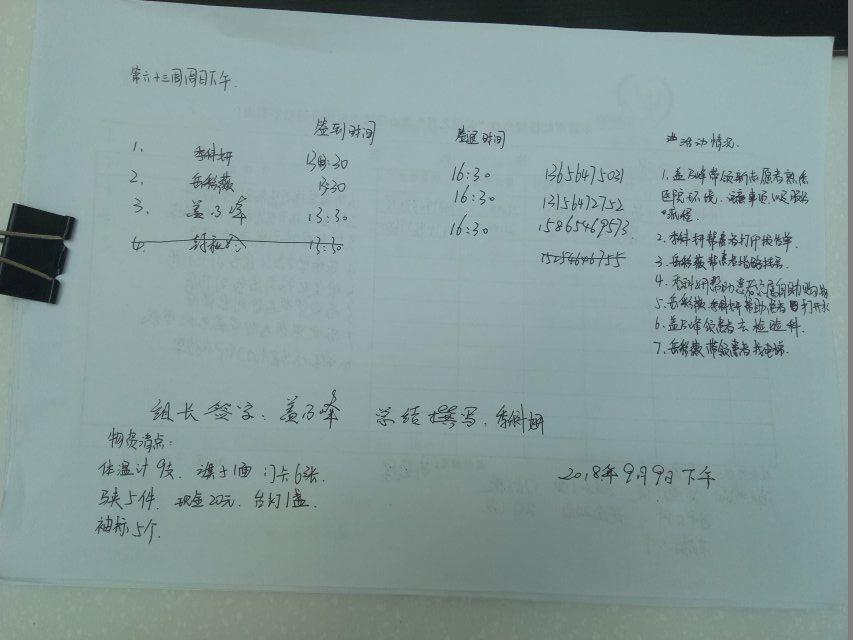 第六十三周周日下午.
签到时间 签退时间 活动情况.
1. 李科妍 13:30 16:30 13656475031
2. 岳彩薇 13:30 16:30 13156472752
3. 盖乃峰 13:30 16:30 15865469573
4. 13:30 15254646755
1. 盖乃峰带领新志愿者熟悉
医院环境、注意事项以及服务
流程.
2. 李科妍帮患者打印报告单.
3. 岳彩薇帮患者指路挂号.
4. 李科妍帮助患者
5. 岳彩薇 李科妍帮助患者打开水
6. 盖乃峰领患者去检验科.
7. 岳彩薇带领患者找电梯.
组长签字:盖乃峰 总结撰写:李科妍
物资清点:
体温计9支 旗子1面 门卡6张.
马夹5件. 现金20元. 台灯1盏.
袖标5个.
2018年9月9日下午